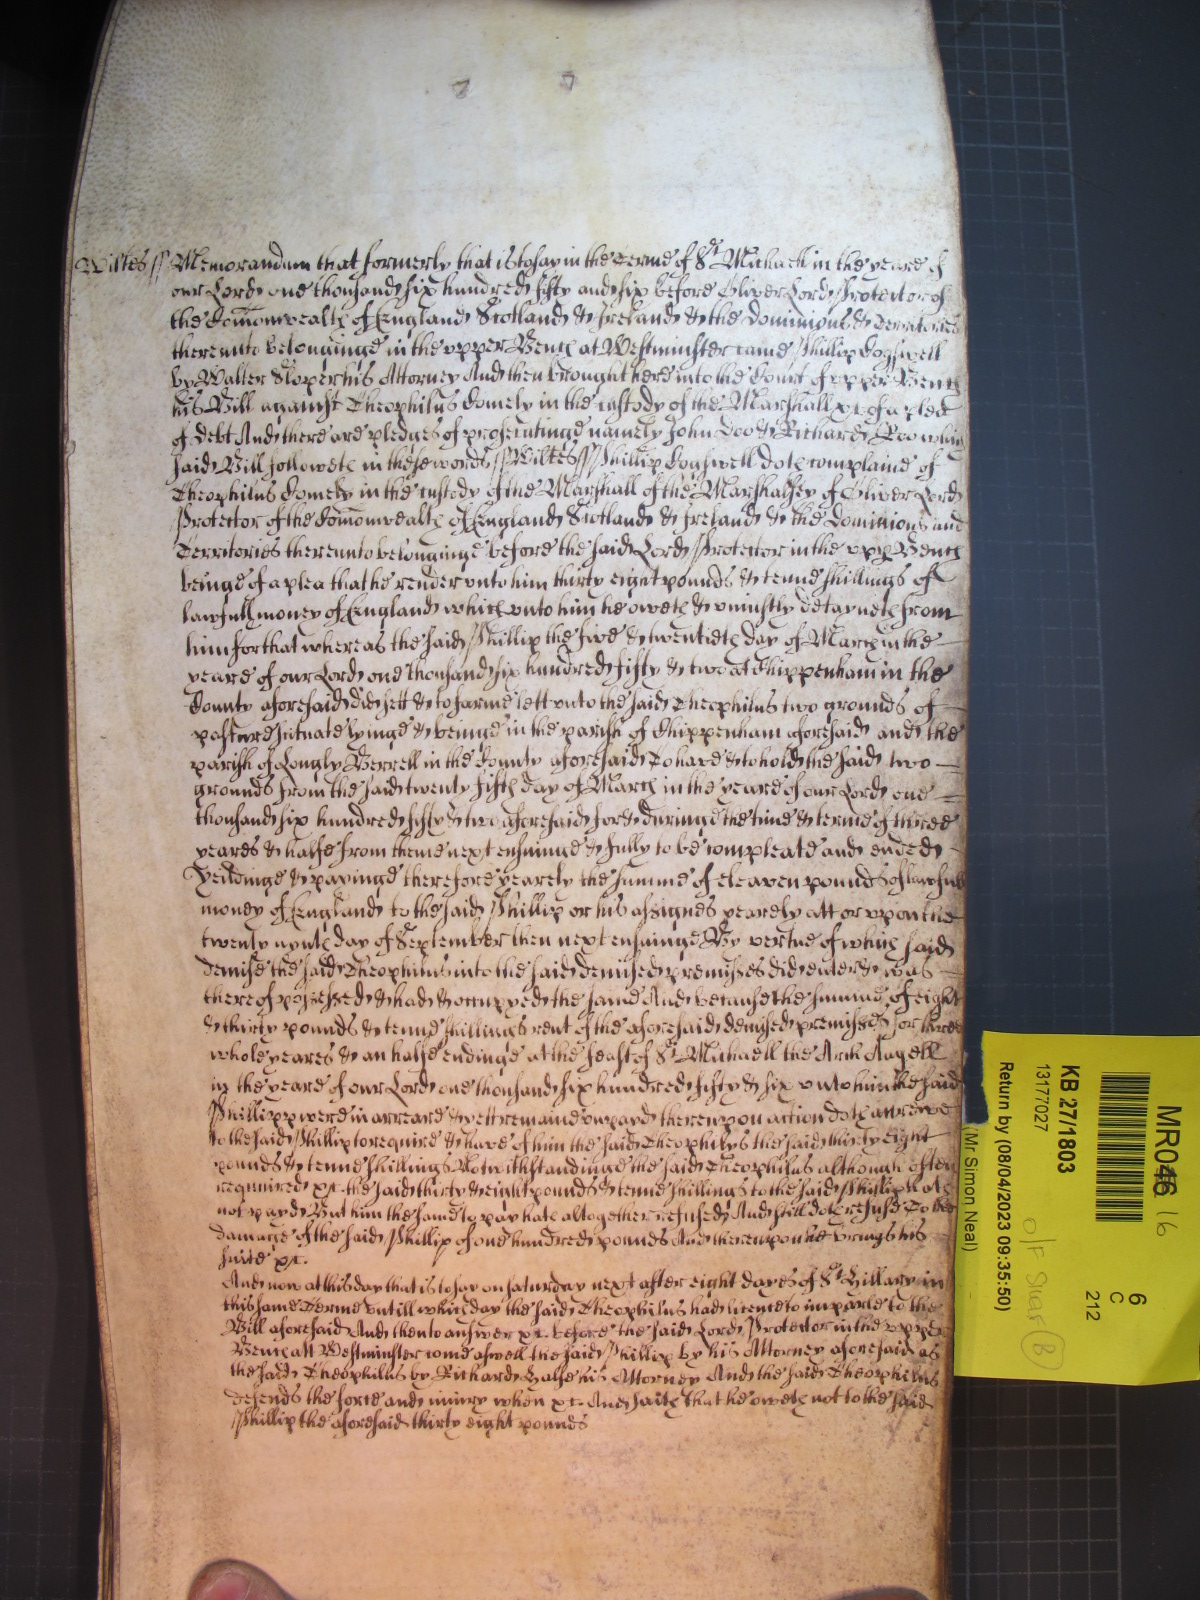 Wiltes // Memorandum that formerly that is to say in the terme of St Michaell in the yeare of
our Lord one thousand six hundred fifty and six before Oliver Lord Protector of
the Comonwealth of England Scotland & Ireland & the Dominions & Terratories
thereunto belonginge in the upper Bench at Westminster came Phillip Cogswell
by Walter Sloper his Attorney And then brought here into the Court of upper Bench
his Bill against Theophilus Comely in the custody of the Marshall &c of a plea
of debt And there are pledges of prosecutinge namely John Doo & Richard Roo which
said Bill followeth in these words // Wiltes // Phillip Cogswell doth complaine of
Theophilus Comely in the custody of the Marshall of the Marshalsey of Oliver Lord
Protector of the Comonwealth of England Scotland & Ireland & the Dominions and
Territories thereunto belonginge before the said Lord Protector in the upp Bench
beinge of a plea that he render unto him thirty eight pounds & tenne shillings of
lawfull money of England which unto him he oweth & uniustly detayneth from
him for that whereas the said Phillip the five & twentieth day of March in the
yeare of our Lord one thousand six hundred fifty & two at Chippenham in the
County aforesaid did sett & to farme lett unto the said Theophilus two grounds of
pasture scituate lyinge & beinge in the parish of Chippenham aforesaid and the
parish of Langly Berrell in the County aforesaid To have & to hold the said two
grounds from the said twenty fifth day of March in the yeare of our Lord one
thousand six hundred fifty & two aforesaid for & duringe the time & terme of three
yeares & halfe from thence next ensuinge & fully to be compleate and ended
Yeildinge & payinge therefore yearely the summe of eleaven pounds of lawfull
money of England to the said Phillip or his assignes yearely att or upon the
twenty nynth day of September then next ensuinge By vertue of which said
demise the said Theophilus into the said demised premisses did enter & was
thereof possessed & had & occupyed the same And because the summe of eight
& thirty pounds & tenne shillings rent of the aforesaid demised premisses for three
whole yeares & an halfe endinge at the feast of St Michaell the Arch Angell
in the yeare of our Lord one thousand six hundred fifty & six unto him the said
Phillipp were in arreare & yett remaine unpayd thereupon action doth accrewe
to the said Phillip to require & have of him the said Theophilus the said thirty eight
pounds & tenne shillings Notwithstandinge the said Theophilus although often
required &c the said thirty & eight pounds & tenne shillings to the said Phillip hath
not payd But him the same to pay hath altogether refused And still doth refuse To the
damage of the said Phillip of one hundred pounds And thereupon he brings his
suite &c.
And now at this day that is to say on Saturday next after eight dayes of St Hillary in
this same Terme untill which day the said Theophilus had licence to imparle to the
Bill aforesaid And then to answer &c. before the said Lord Protector in the upper
Bench att Westminster come aswell the said Phillip by his Attorney aforesaid as
the said Theophilus by Richard Halse his Attorney And the said Theophilus
defends the force and iniury when &c. And saith that he oweth not to the said
Phillip the aforesaid thirty eight pounds
MR046 16
KB 27/1803
13177027
Return by (08/04/2023 09:35:50)
(Mr Simon Neal)
6
C
212
O/F Shelf (B)